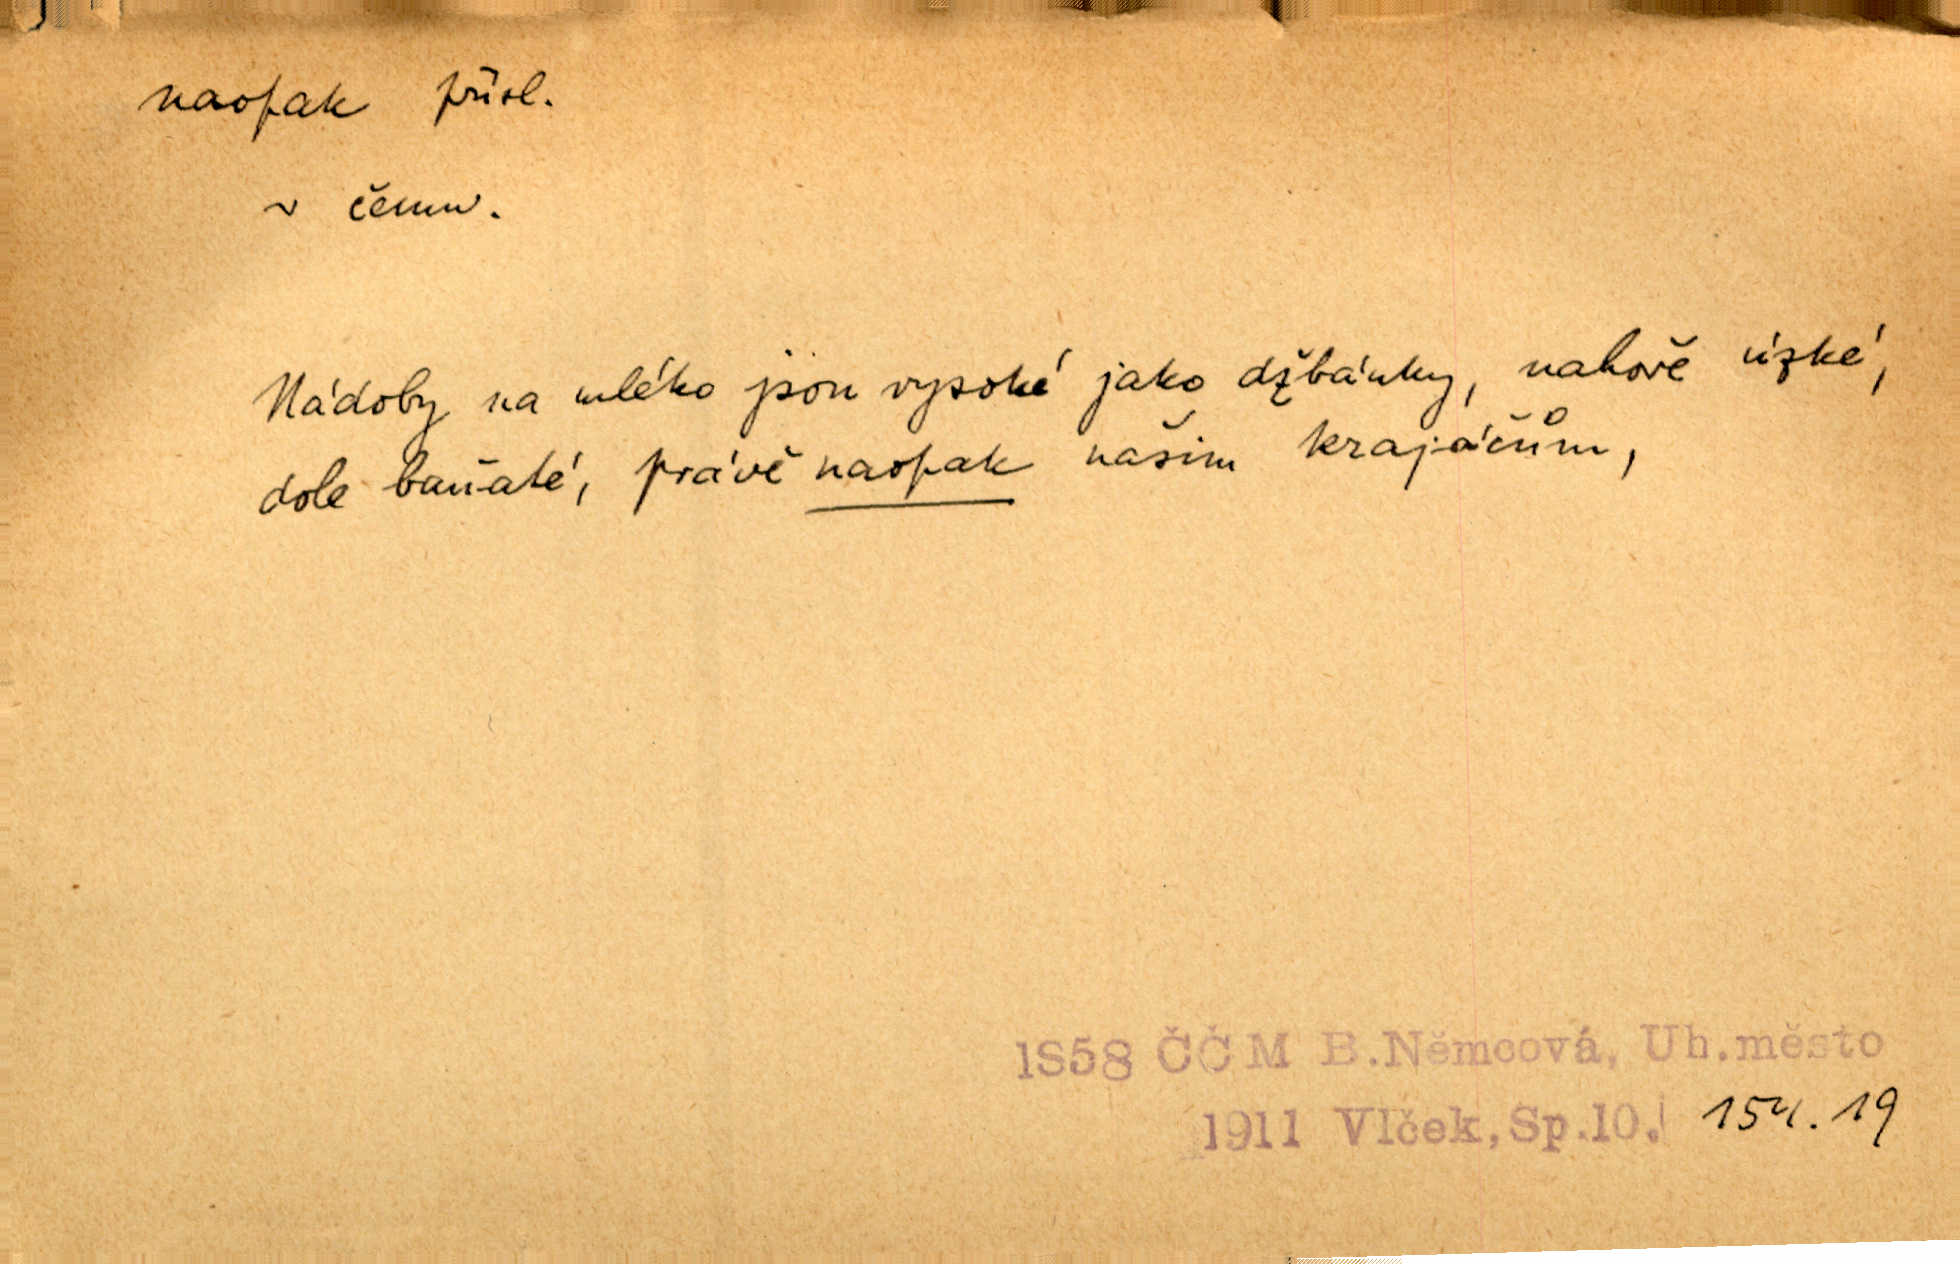 naopak přísl.
~ čemu.
Nádoby na mléko jsou vysoké jako džbánky, nahoře úzké,
dole baňaté, právě naopak našim krajáčům,
1858 ČČM B.Němcová, Uh.město
1911 Vlček, Sp.10. 154.19